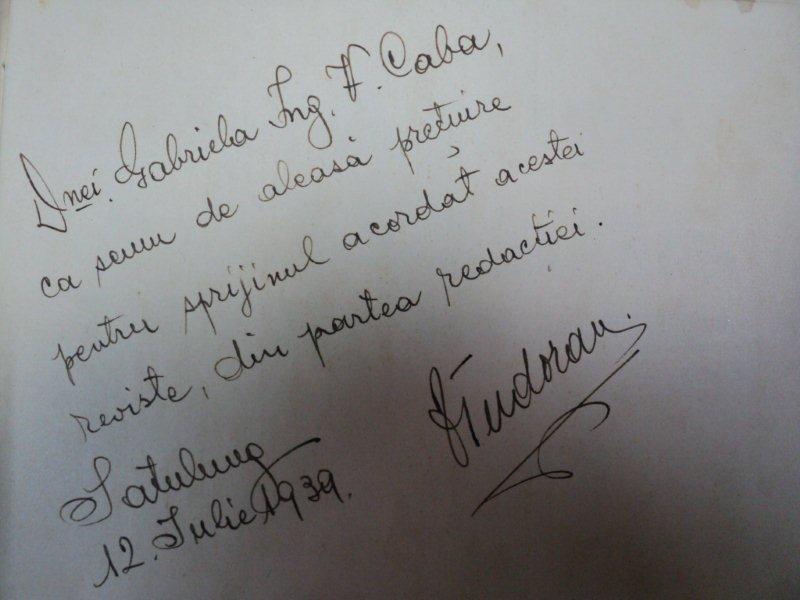 Dnei. Gabriela Ing. V. Caba,
ca semn de aleasă prețuire
pentru sprijinul acordat acestei
reviste, din partea redacției.
Satulung
12. Iulie 1939.
Tudoran.